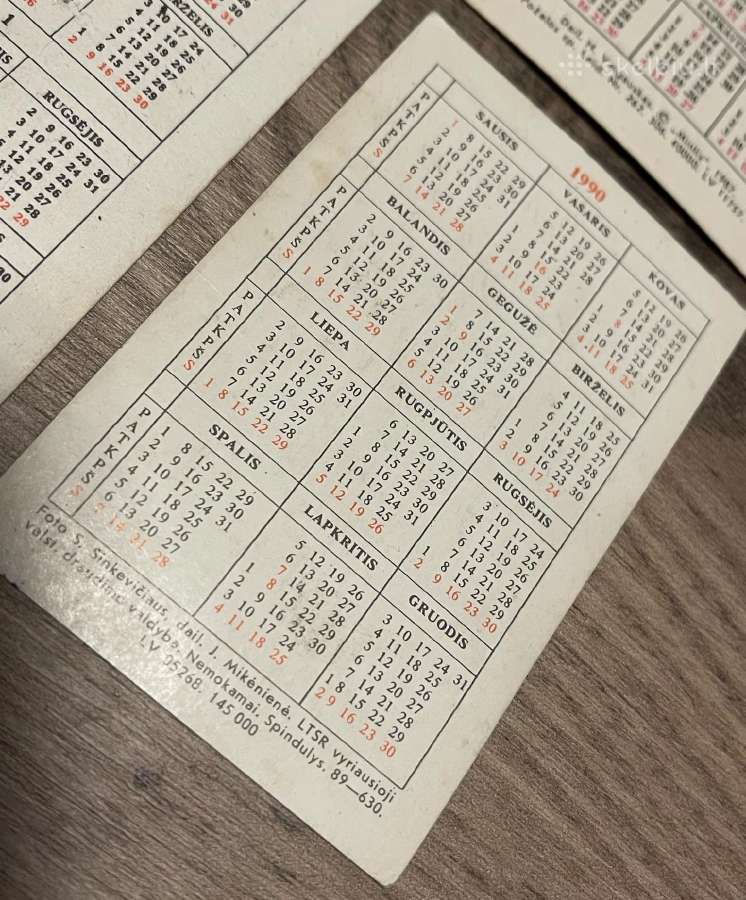 1990
SAUSIS
P 1 8 15 22 29
A 2 9 16 23 30
T 3 10 17 24 31
K 4 11 18 25
P 5 12 19 26
S 6 13 20 27
S 7 14 21 28
VASARIS
5 12 19 26
6 13 20 27
7 14 21 28
1 8 15 22
2 9 16 23
3 10 17 24
4 11 18 25
KOVAS
5 12 19 26
6 13 20 27
7 14 21 28
1 8 15 22 29
2 9 16 23 30
3 10 17 24 31
4 11 18 25
BALANDIS
P 2 9 16 23 30
A 3 10 17 24
T 4 11 18 25
K 5 12 19 26
P 6 13 20 27
S 7 14 21 28
S 1 8 15 22 29
GEGUŽĖ
7 14 21 28
1 8 15 22 29
2 9 16 23 30
3 10 17 24 31
4 11 18 25
5 12 19 26
6 13 20 27
BIRŽELIS
4 11 18 25
5 12 19 26
6 13 20 27
7 14 21 28
1 8 15 22 29
2 9 16 23 30
3 10 17 24
LIEPA
P 2 9 16 23 30
A 3 10 17 24 31
T 4 11 18 25
K 5 12 19 26
P 6 13 20 27
S 7 14 21 28
S 1 8 15 22 29
RUGPJŪTIS
6 13 20 27
7 14 21 28
1 8 15 22 29
2 9 16 23 30
3 10 17 24 31
4 11 18 25
5 12 19 26
RUGSĖJIS
3 10 17 24
4 11 18 25
5 12 19 26
6 13 20 27
7 14 21 28
1 8 15 22 29
2 9 16 23 30
SPALIS
P 1 8 15 22 29
A 2 9 16 23 30
T 3 10 17 24 31
K 4 11 18 25
P 5 12 19 26
S 6 13 20 27
S 7 14 21 28
LAPKRITIS
5 12 19 26
6 13 20 27
7 14 21 28
1 8 15 22 29
2 9 16 23 30
3 10 17 24
4 11 18 25
GRUODIS
3 10 17 24 31
4 11 18 25
5 12 19 26
6 13 20 27
7 14 21 28
1 8 15 22 29
2 9 16 23 30
Foto S. Sinkevičiaus, dail. J. Mikėnienė. LTSR vyriausioji
valst. draudimo valdyba. Nemokamai. Spindulys. 89—630.
LV 05268. 145 000
RUGSĖJIS
2 9 16 23 30
3 10 17 24
4 11 18 25
Skelbiu.lt